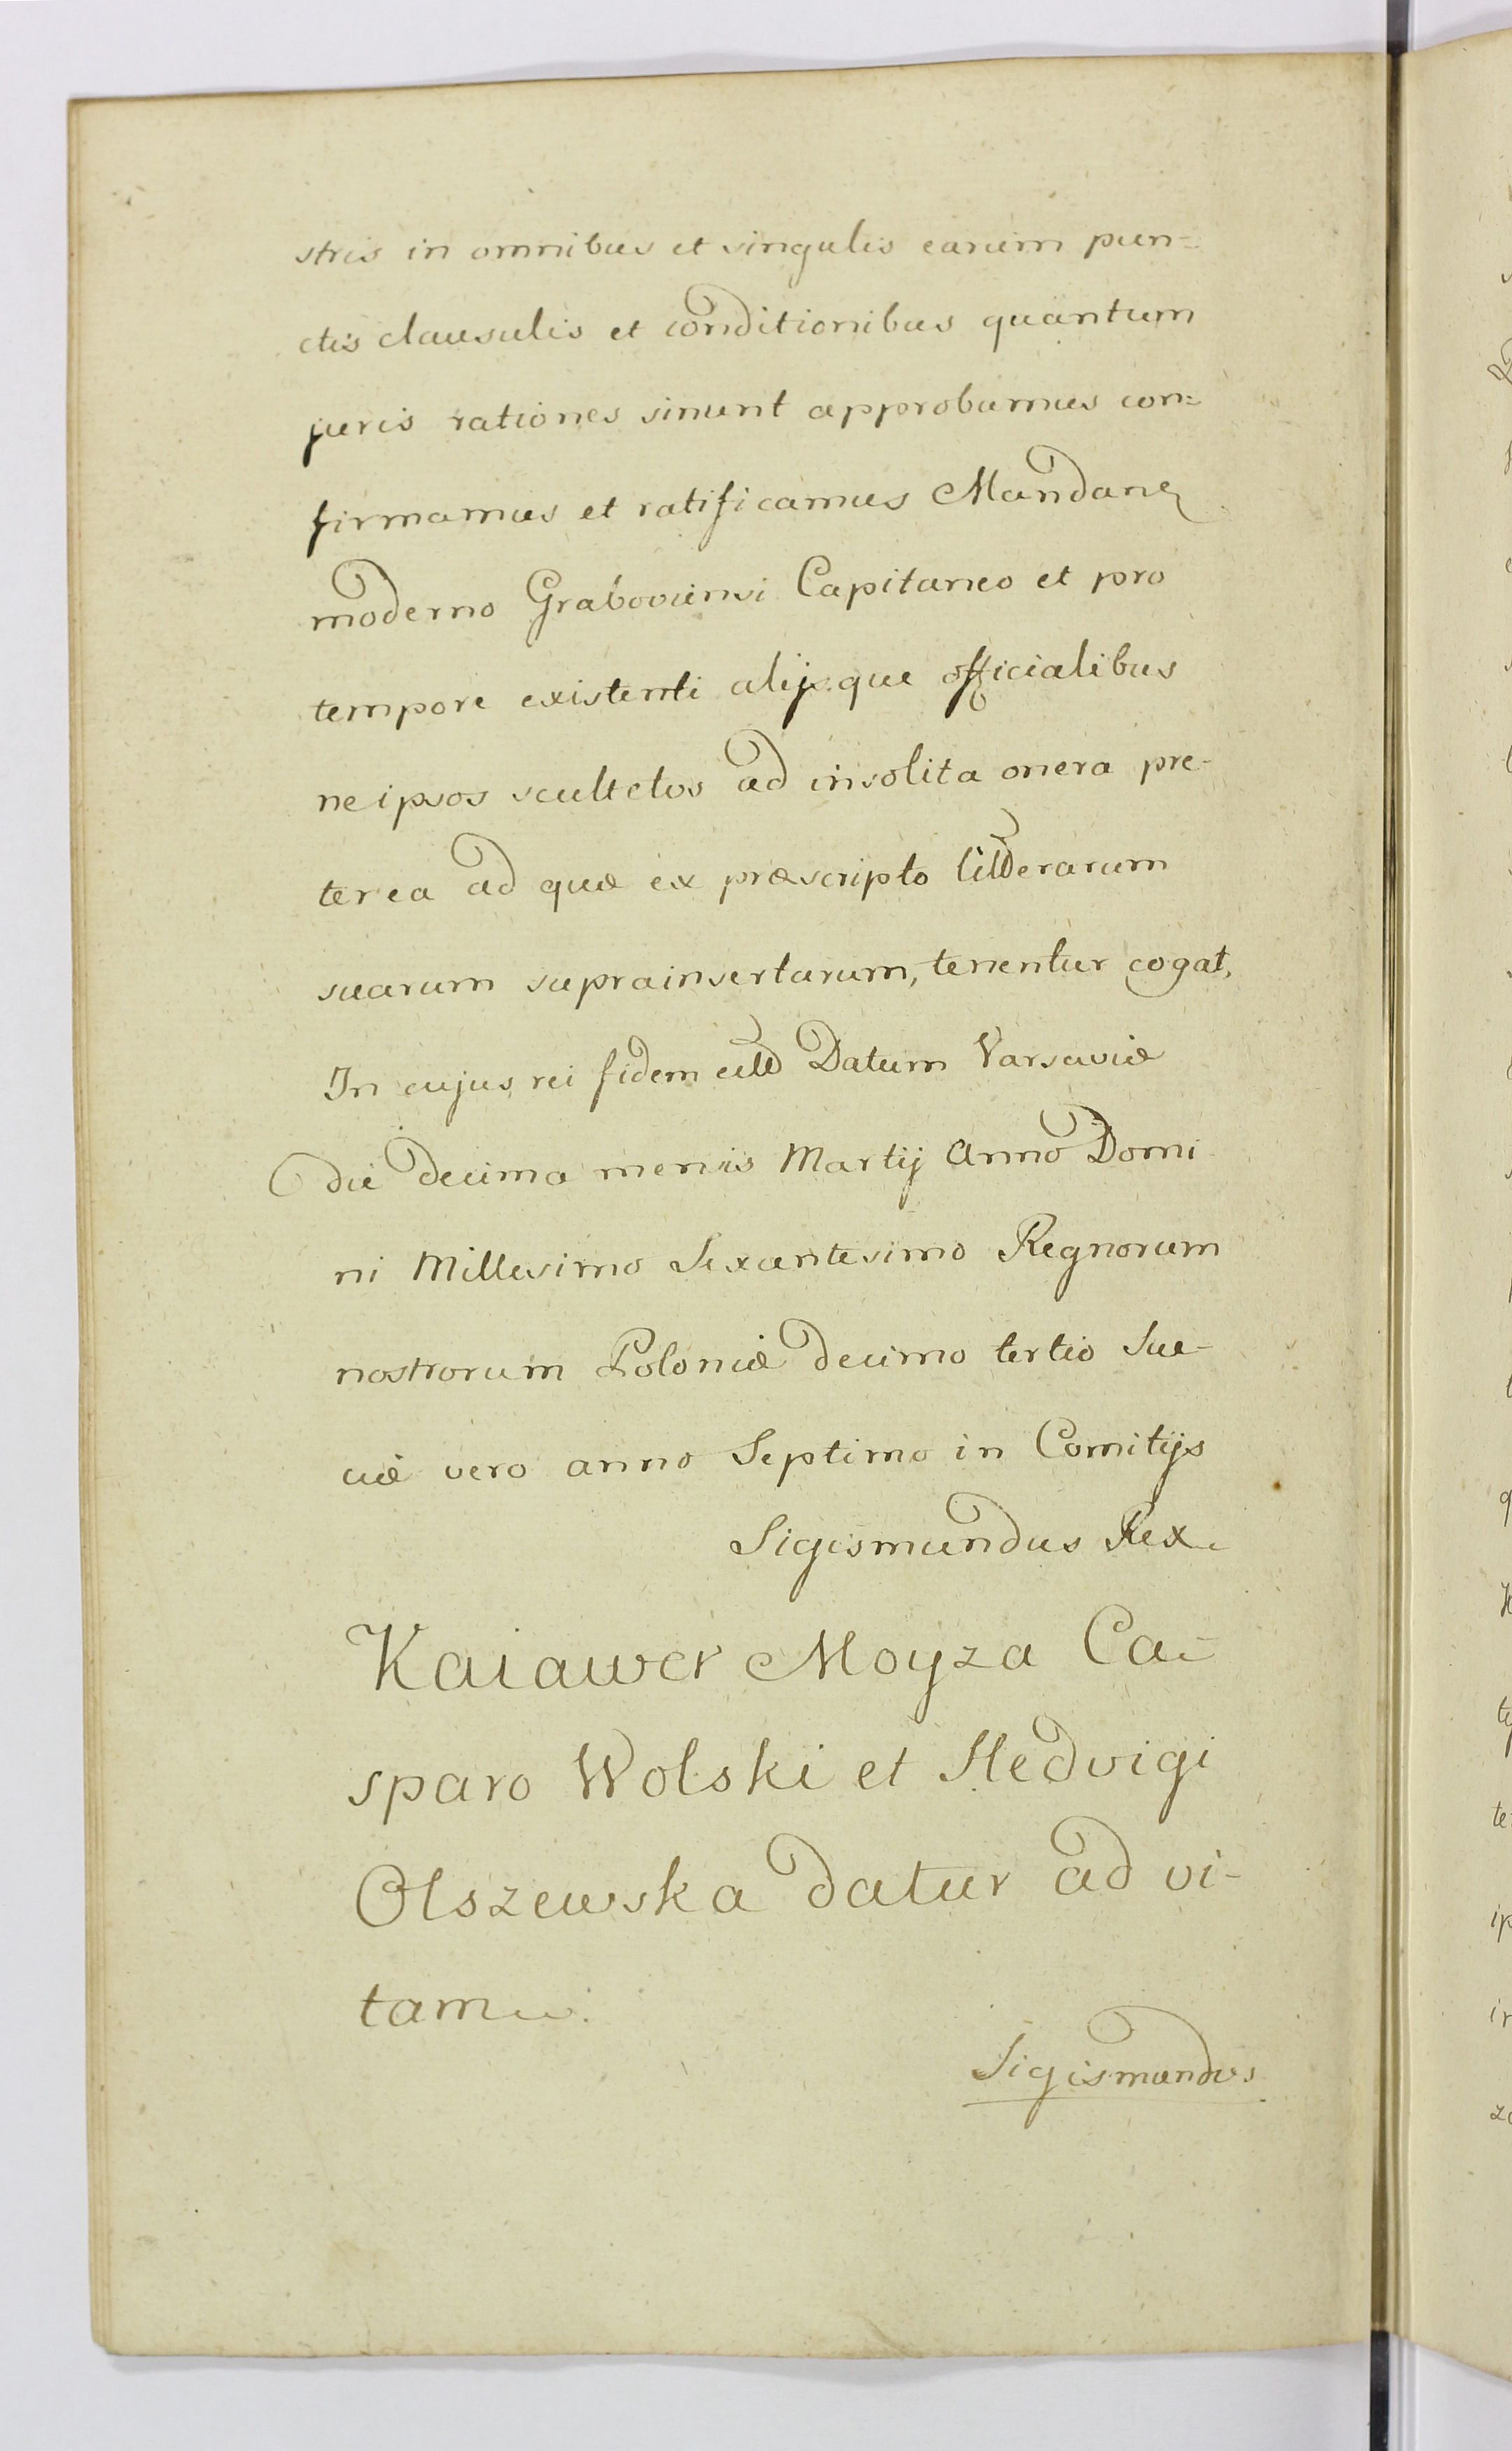 stris in omnibus et singulis earum pun=
ctis clausulis et conditionibus quantum
juris rationes sinunt approbamus con=
firmamus et ratificamus Mandan
moderno Graboviensi Capitaneo et pro
tempore existenti alijsque officialibus
ne ipsos scultetos ad insolita onera pre-
terea ad quæ ex præscripto litterarum
suarum suprainsertarum, tenentur cogat,
In cujus rei fidem Datum Varsaviæ
die decima mensis Martij Anno Domi
ni Millesimo Sexcentesimo Regnorum
nostrorum Poloniæ decimo tertio Sue-
ciæ vero anno Septimo in Comitijs
Sigismundus Rex.
Kaiawer Moyza Ca=
sparo Wolski et Hedvigi
Olszewska datur ad vi-
tam
Sigismundus